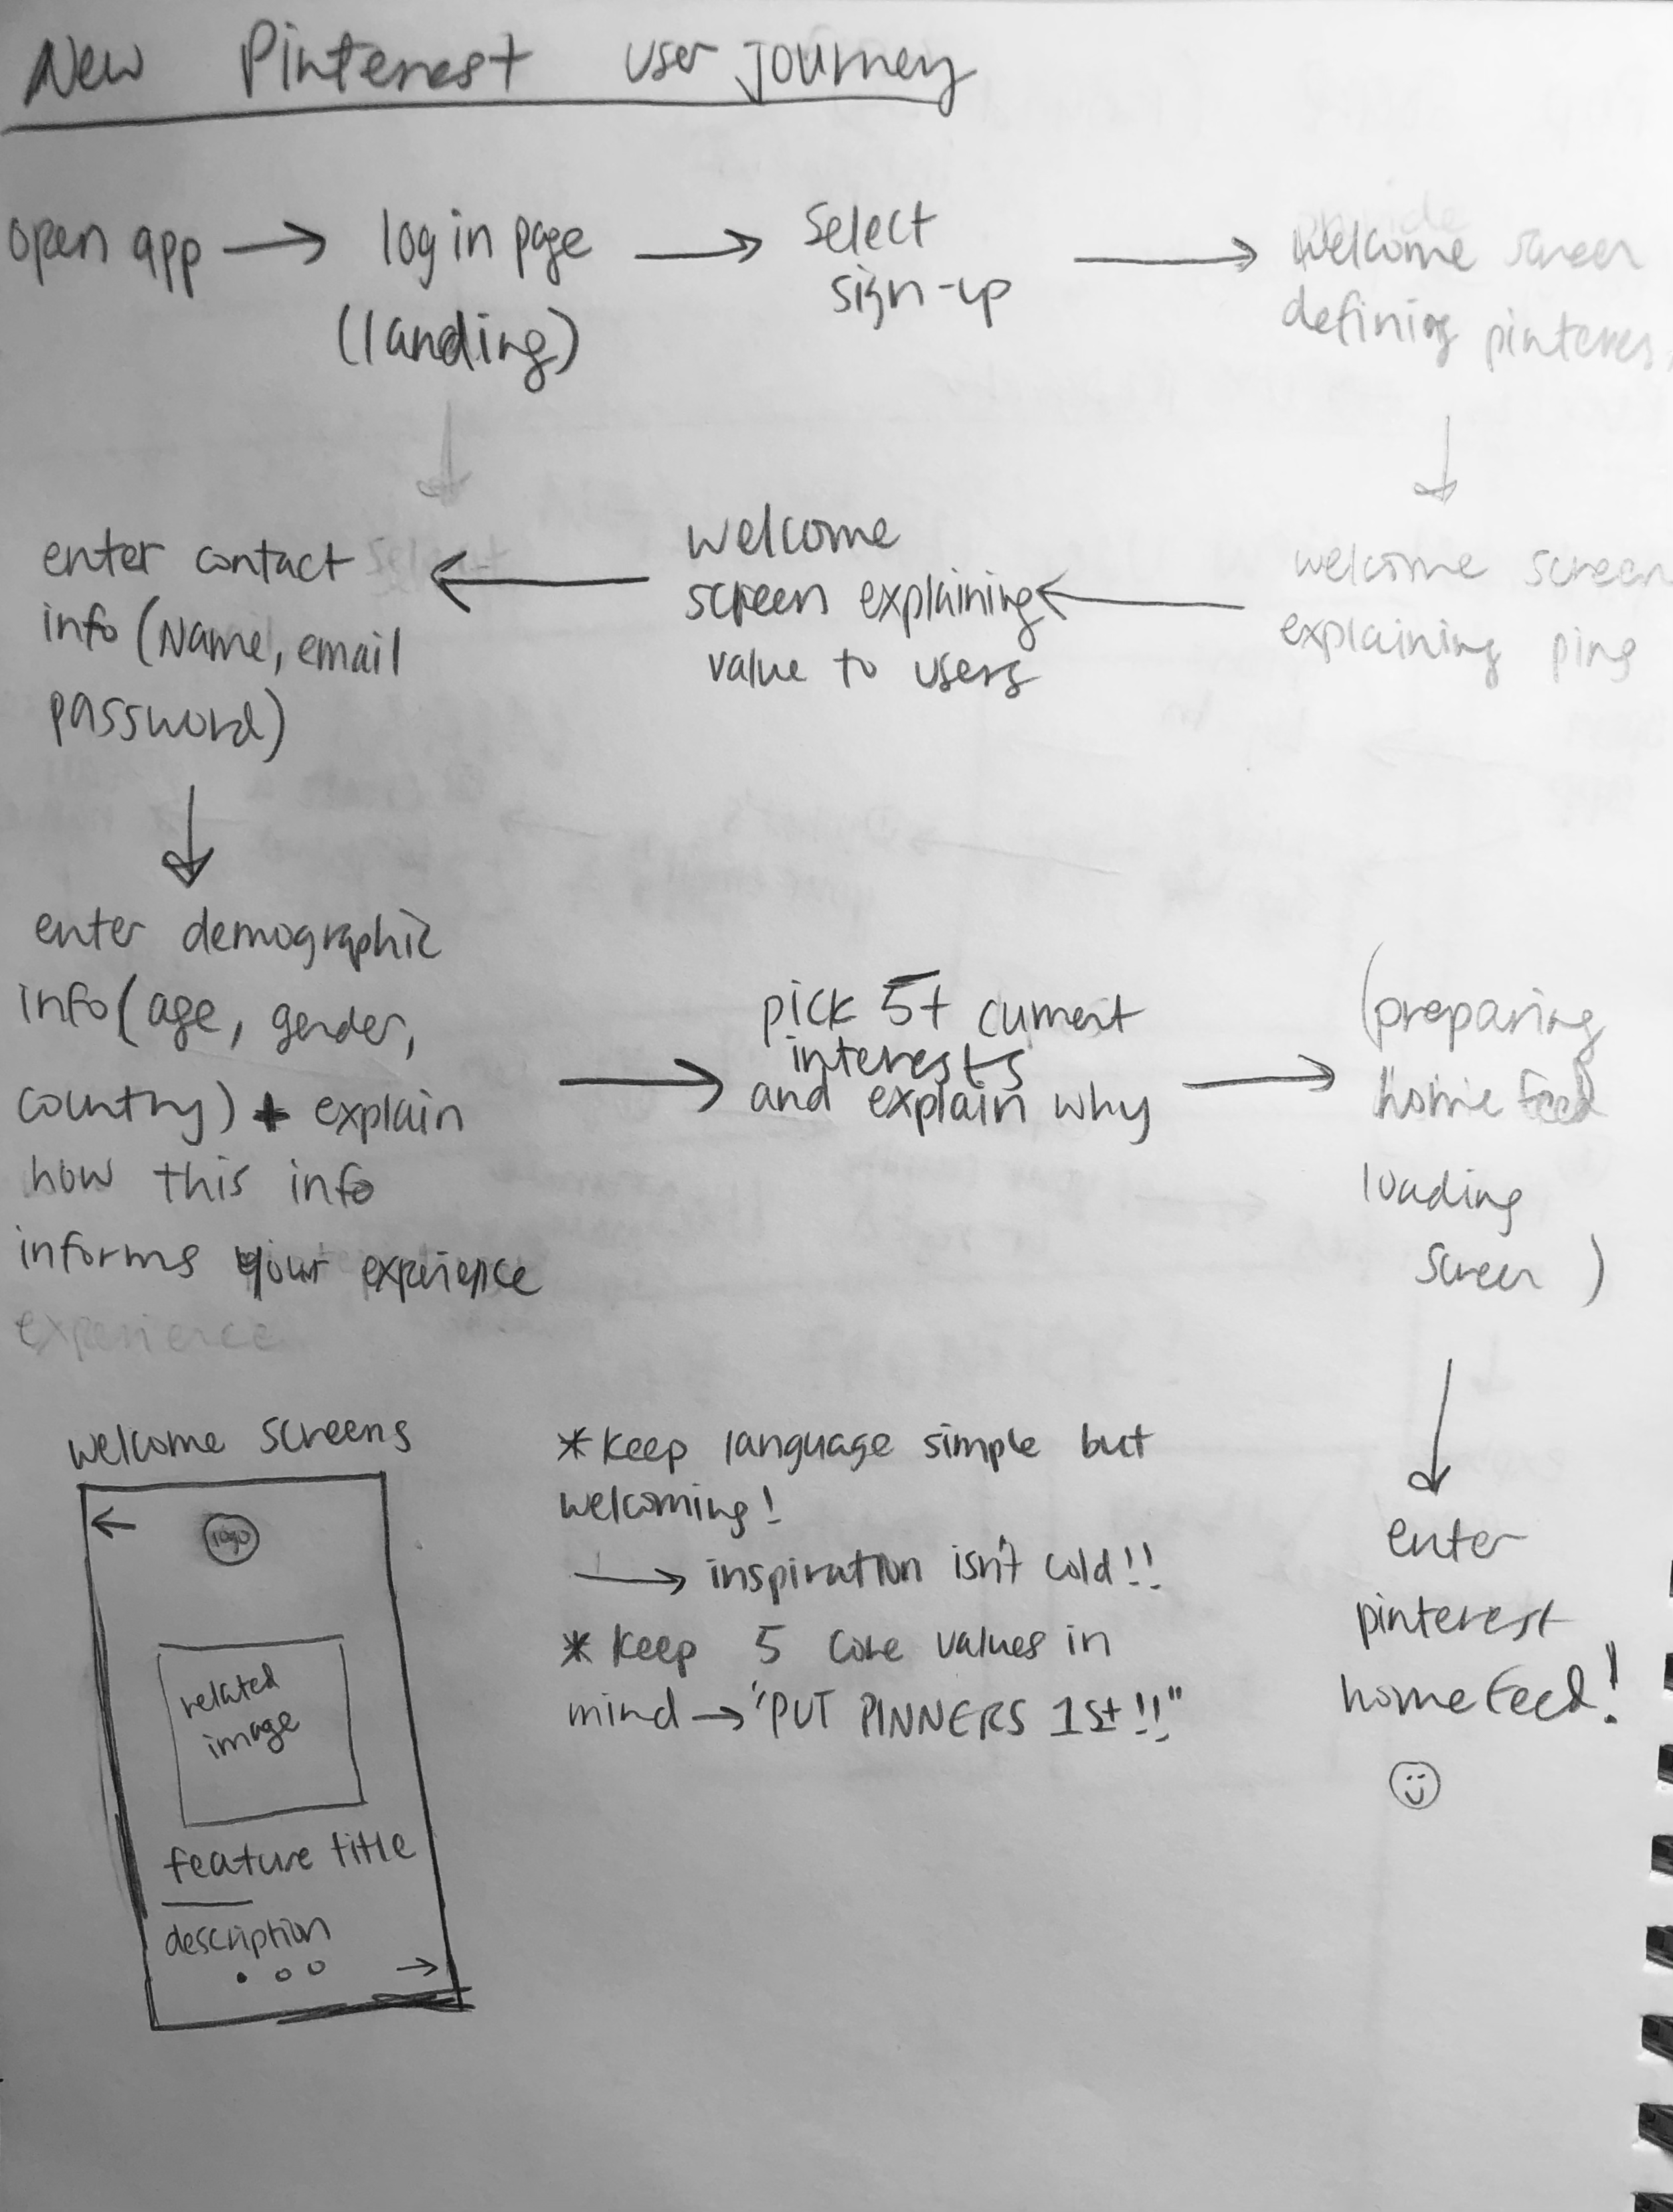 New Pinterest user journey
open app → log in page
(landing)
→ select
sign-up
→ welcome screen
defining pinterest
↓
welcome screen
explaining pins
← welcome
screen explaining
value to users
← enter contact
info (Name, email
password)
↓
enter demographic
info (age, gender,
country) + explain
how this info
informs your experience
experience
→ pick 5+ current
interests
and explain why
→ (preparing
home feed
loading
screen)
↓
enter
pinterest
home feed!
welcome screens
←
logo
related
image
feature title
description
→
* Keep language simple but
welcoming!
→ inspiration isn't cold!!
* Keep 5 core values in
mind → "PUT PINNERS 1st!!"